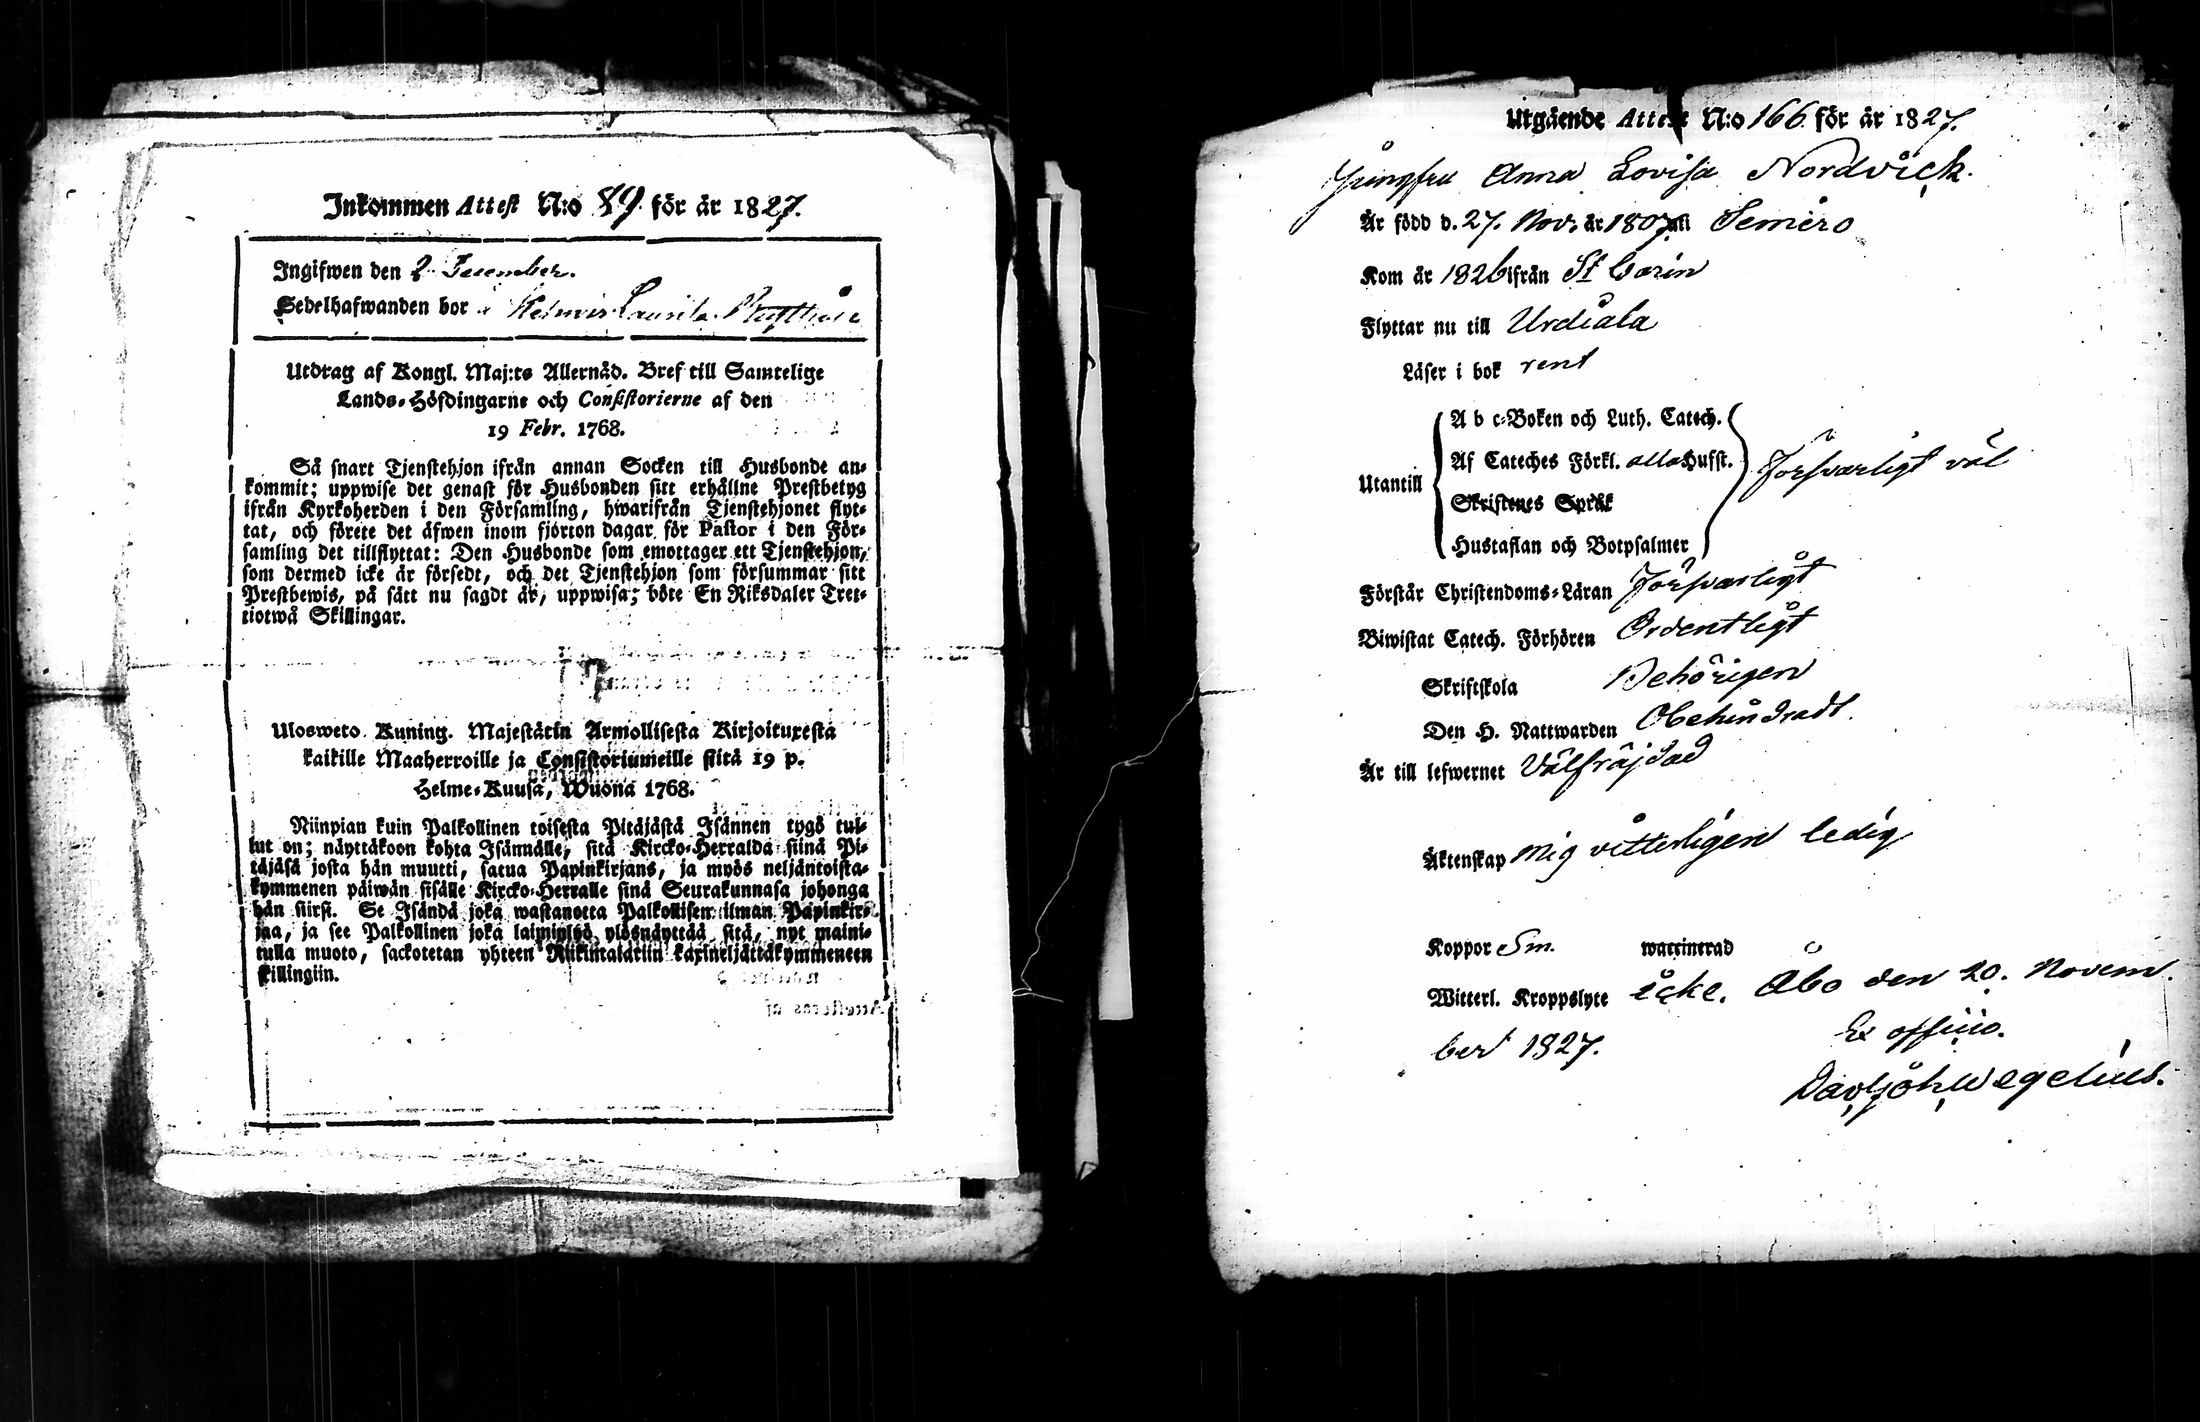 Inkommen Attest N:o 89. för år 1827.
Ingifwen den 2 December.
Sedelhafwanden bor
Utdrag af Kongl. Maj:ts Allernåd. Bref till Samtelige
Lands-Höfdingarne och Consistorierne af den
19 Febr. 1768.
Så snart Tjenstehjon ifrån annan Socken till Husbonde an-
kommit; uppwise det genast för Husbonden sitt erhållne Prestbetyg
ifrån Kyrkoherden i den Församling, hwarifrån Tjenstehjonet flyt-
tat, och förete det äfwen inom fjorton dagar för Pastor i den För-
samling det tillflyttat: Den Husbonde som emottager ett Tjenstehjon,
som dermed icke är försedt, och det Tjenstehjon som försummar sitt
Prestbewis, på sätt nu sagdt är, uppwisa; böte En Riksdaler Tret-
tiotwå Skillingar.
Ulosweto Kuning. Majestätin Armollisesta Kirjoituxesta
kaikille Maaherroille ja Consistoriumeille siitä 19 p.
Helme-Kuusa, Wuonna 1768.
Niinpian kuin Palkollinen toisesta Pitäjästä Isännen tygö tul-
lut on; näyttäkoon kohta Isännälle, sitä Kircko-Herralda siinä Pi-
täjäsä josta hän muutti, saatua Papinkirjans, ja myös neljäntoista-
kymmenen päiwän sisälle Kircko-Herralle siinä Seurakunnasa johonga
hän siirsi. Se Isändä joka wastanotta Palkollisen ilman Papinkir-
jaa, ja see Palkollinen joka laiminlyö ylösnäyttää sitä, nyt maini-
tulla muoto, sackotetan yhteen Riikintalariin kaxineljättäkymmeneen
killingiin.
Utgående Attest N:o 166. för år 1827.
Jungfru Anna Lovisa Nordvick.
Är född d. 27. Nov. år 1807 uti Semiro
Kom år 1826 ifrån St Carin
Flyttar nu till Urdiala
Läser i bok rent
Utantill
A b c-Boken och Luth. Catech.
Af Cateches Förkl. alla Hufst.
Skriftenes Språk
Hustaflan och Botpsalmer
Försvarligt väl
Förstår Christendoms-Läran Försvarligt
Biwistat Catech. Förhören Ordentligt
Skriftskola Behörigen
Den H. Nattwarden Obehindradt.
Är till lefwernet Välfräjdad
Äktenskap mig vitterligen ledig
Koppor Sm. waccinerad
Witterl. Kroppslyte icke. Åbo den 20. Novem-
ber 1827.
Ex officio.
Dav. Joh. Wegelius.